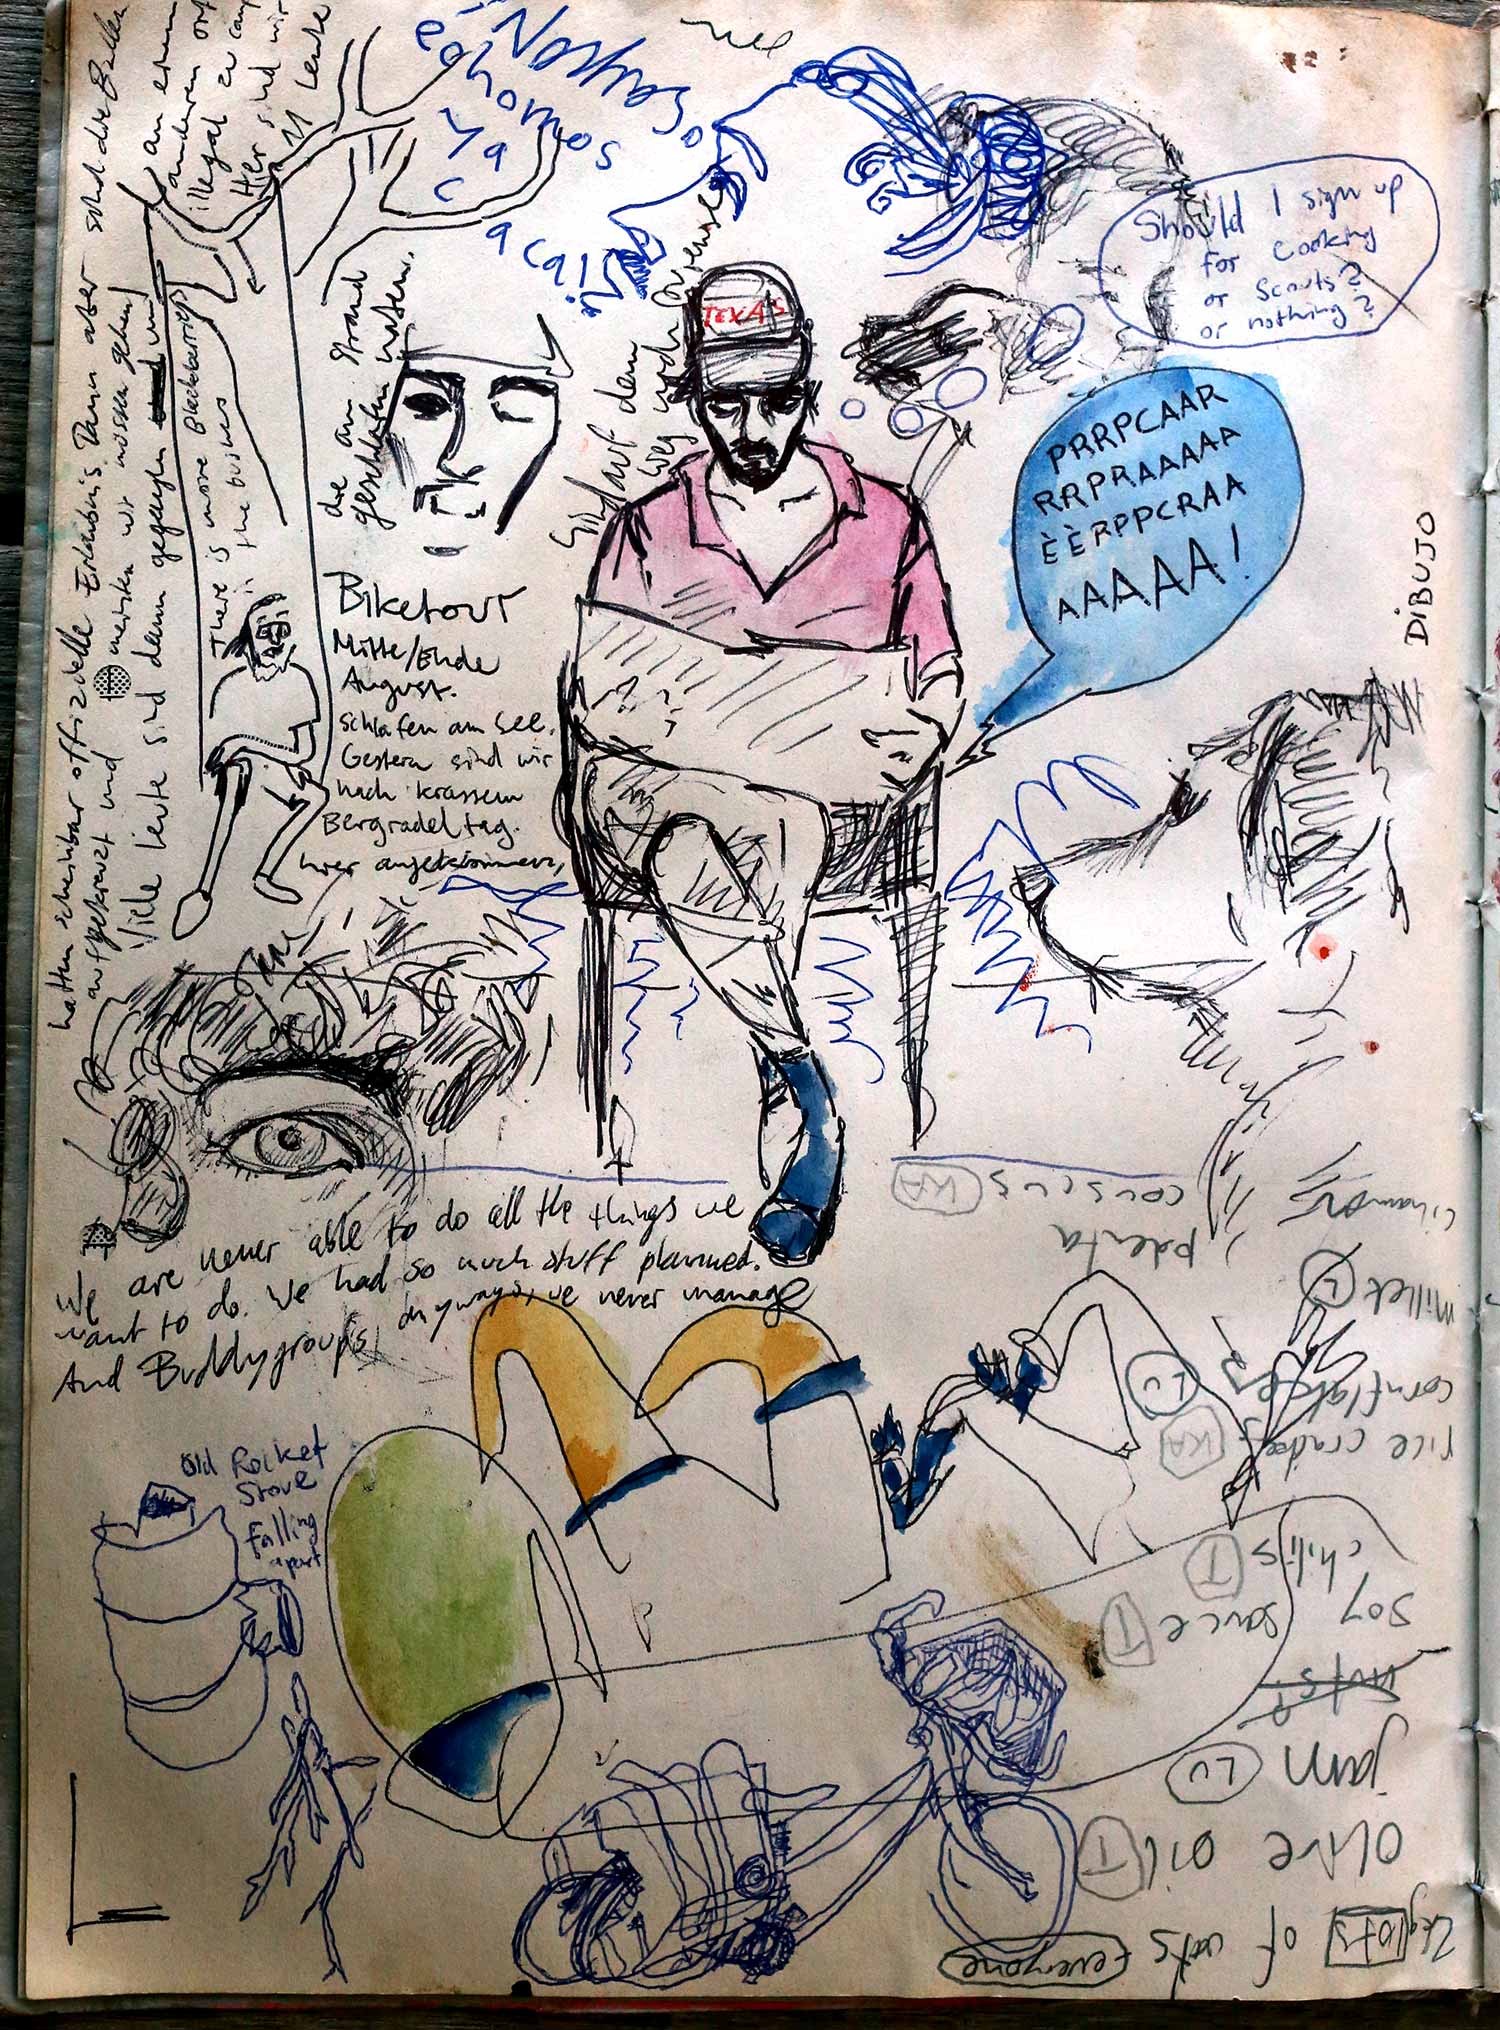 Nosotros
échamos
ya
c
acaíri
Should I sign up
for Cooking
or Scouts?
or nothing?
TEXAS
PRRPCAAR
RRPRAAAAA
ÈÈRPPCRAA
AAAAA!
DIBUJO
an einem
anderen ort
illegal zu camp
Hier sind wir
11 Leute
hatten scheinbar offizielle Erlaubnis. Dann aber sind die Bullen
aufgekreuzt und meinten wir müssen gehen
Viele Leute sind dann gegangen und
There is more Blackberries
in the bushes
die am Strand
geschlafen hatten.
sind auf dem
Weg nach
Biketour
Mitte/Ende
August.
Schlafen am See.
Gestern sind wir
nach krassem
Bergradeltag
hier angekommen,
We are never able to do all the things we
want to do. We had so much stuff planned.
And Buddygroups, anyways, we never manage
Old Rocket
Stove
falling
apart
couscus KA
polenta
cinamon
millet LU
cornflakes LU
rice crackers KA
chilis T
soy sauce T
nuts?
jam LU
olive oil T
2kg lots of oats everyone